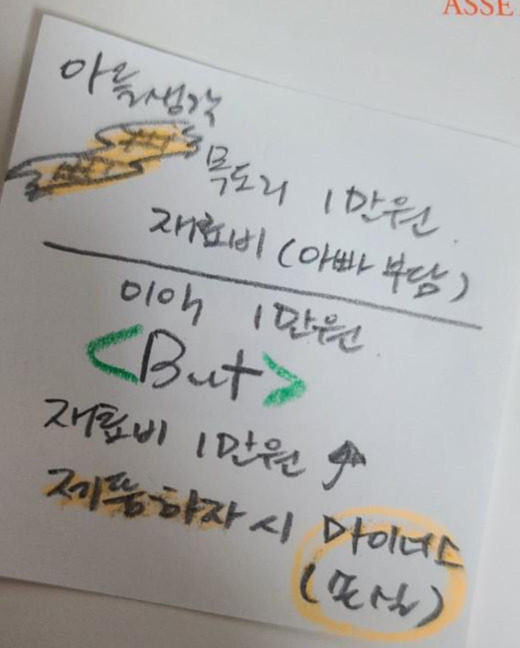 ASSE
아들생각
목도리 1만원.
재료비 (아빠 부담)
이익 1만원.
<But>
재료비 1만원 ↑
제품하자 시 마이너스
(손실)